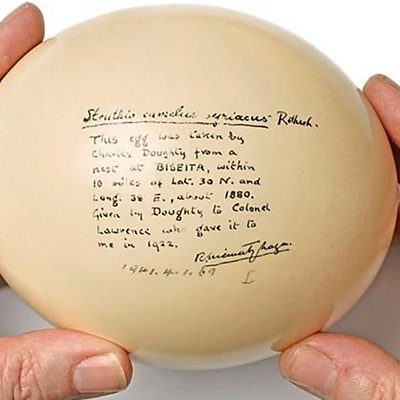 Struthio camelus syriacus Rothsch.
This egg was taken by
Charles Doughty from a
nest at BISEITA, within
10 miles of Lat. 30 N. and
Long. 38 E., about 1880.
Given by Doughty to Colonel
Lawrence who gave it to
me in 1922.
R. Meinertzhagen
1941.4.1.69